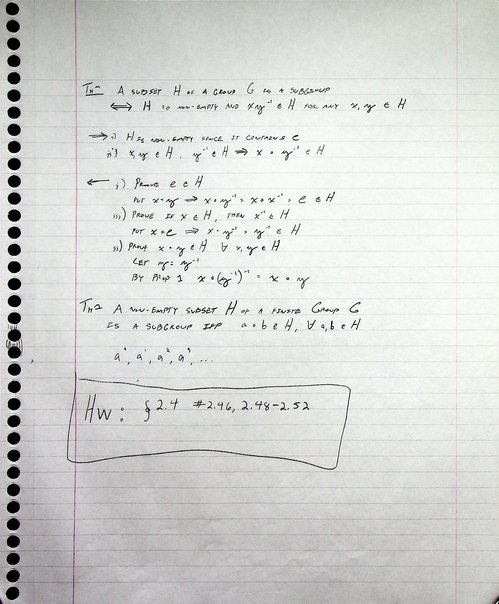 Thm A SUBSET H OF A GROUP G IS A SUBGROUP
⟺ H IS NON-EMPTY AND xy⁻¹ ∈ H FOR ANY x, y ∈ H
⟹ i) H IS NON-EMPTY SINCE IT CONTAINS e
ii) x, y ∈ H, y⁻¹ ∈ H ⟹ x ∘ y⁻¹ ∈ H
⟸ i) PROVE e ∈ H
PUT x = y ⟹ x ∘ y⁻¹ = x ∘ x⁻¹ = e ∈ H
iii) PROVE IF x ∈ H, THEN x⁻¹ ∈ H
PUT x = e ⟹ x ∘ y⁻¹ = y⁻¹ ∈ H
ii) PROVE x ∘ y ∈ H ∀ x, y ∈ H
LET y = y⁻¹
BY PROP 1 x ∘ (y⁻¹)⁻¹ = x ∘ y
Th 2 A NON-EMPTY SUBSET H OF A FINITE GROUP G
IS A SUBGROUP IFF a ∘ b ∈ H, ∀ a, b ∈ H
a⁰, a¹, a², a³, ...
HW: § 2.4 #2.46, 2.48-2.52